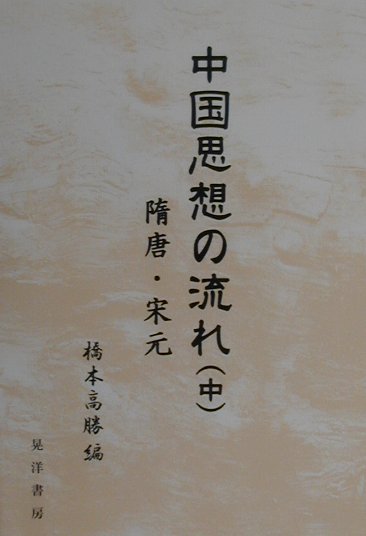 中国思想の流れ（中）
隋唐・宋元
橋本高勝編
晃洋書房